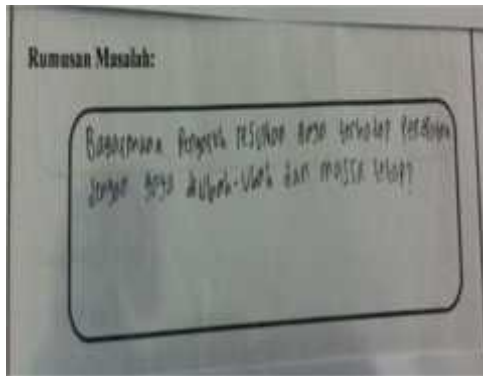 Rumusan Masalah:
Bagaimana Pengaruh resultan gaya terhadap Percepatan
dengan gaya diubah-ubah dan massa tetap?